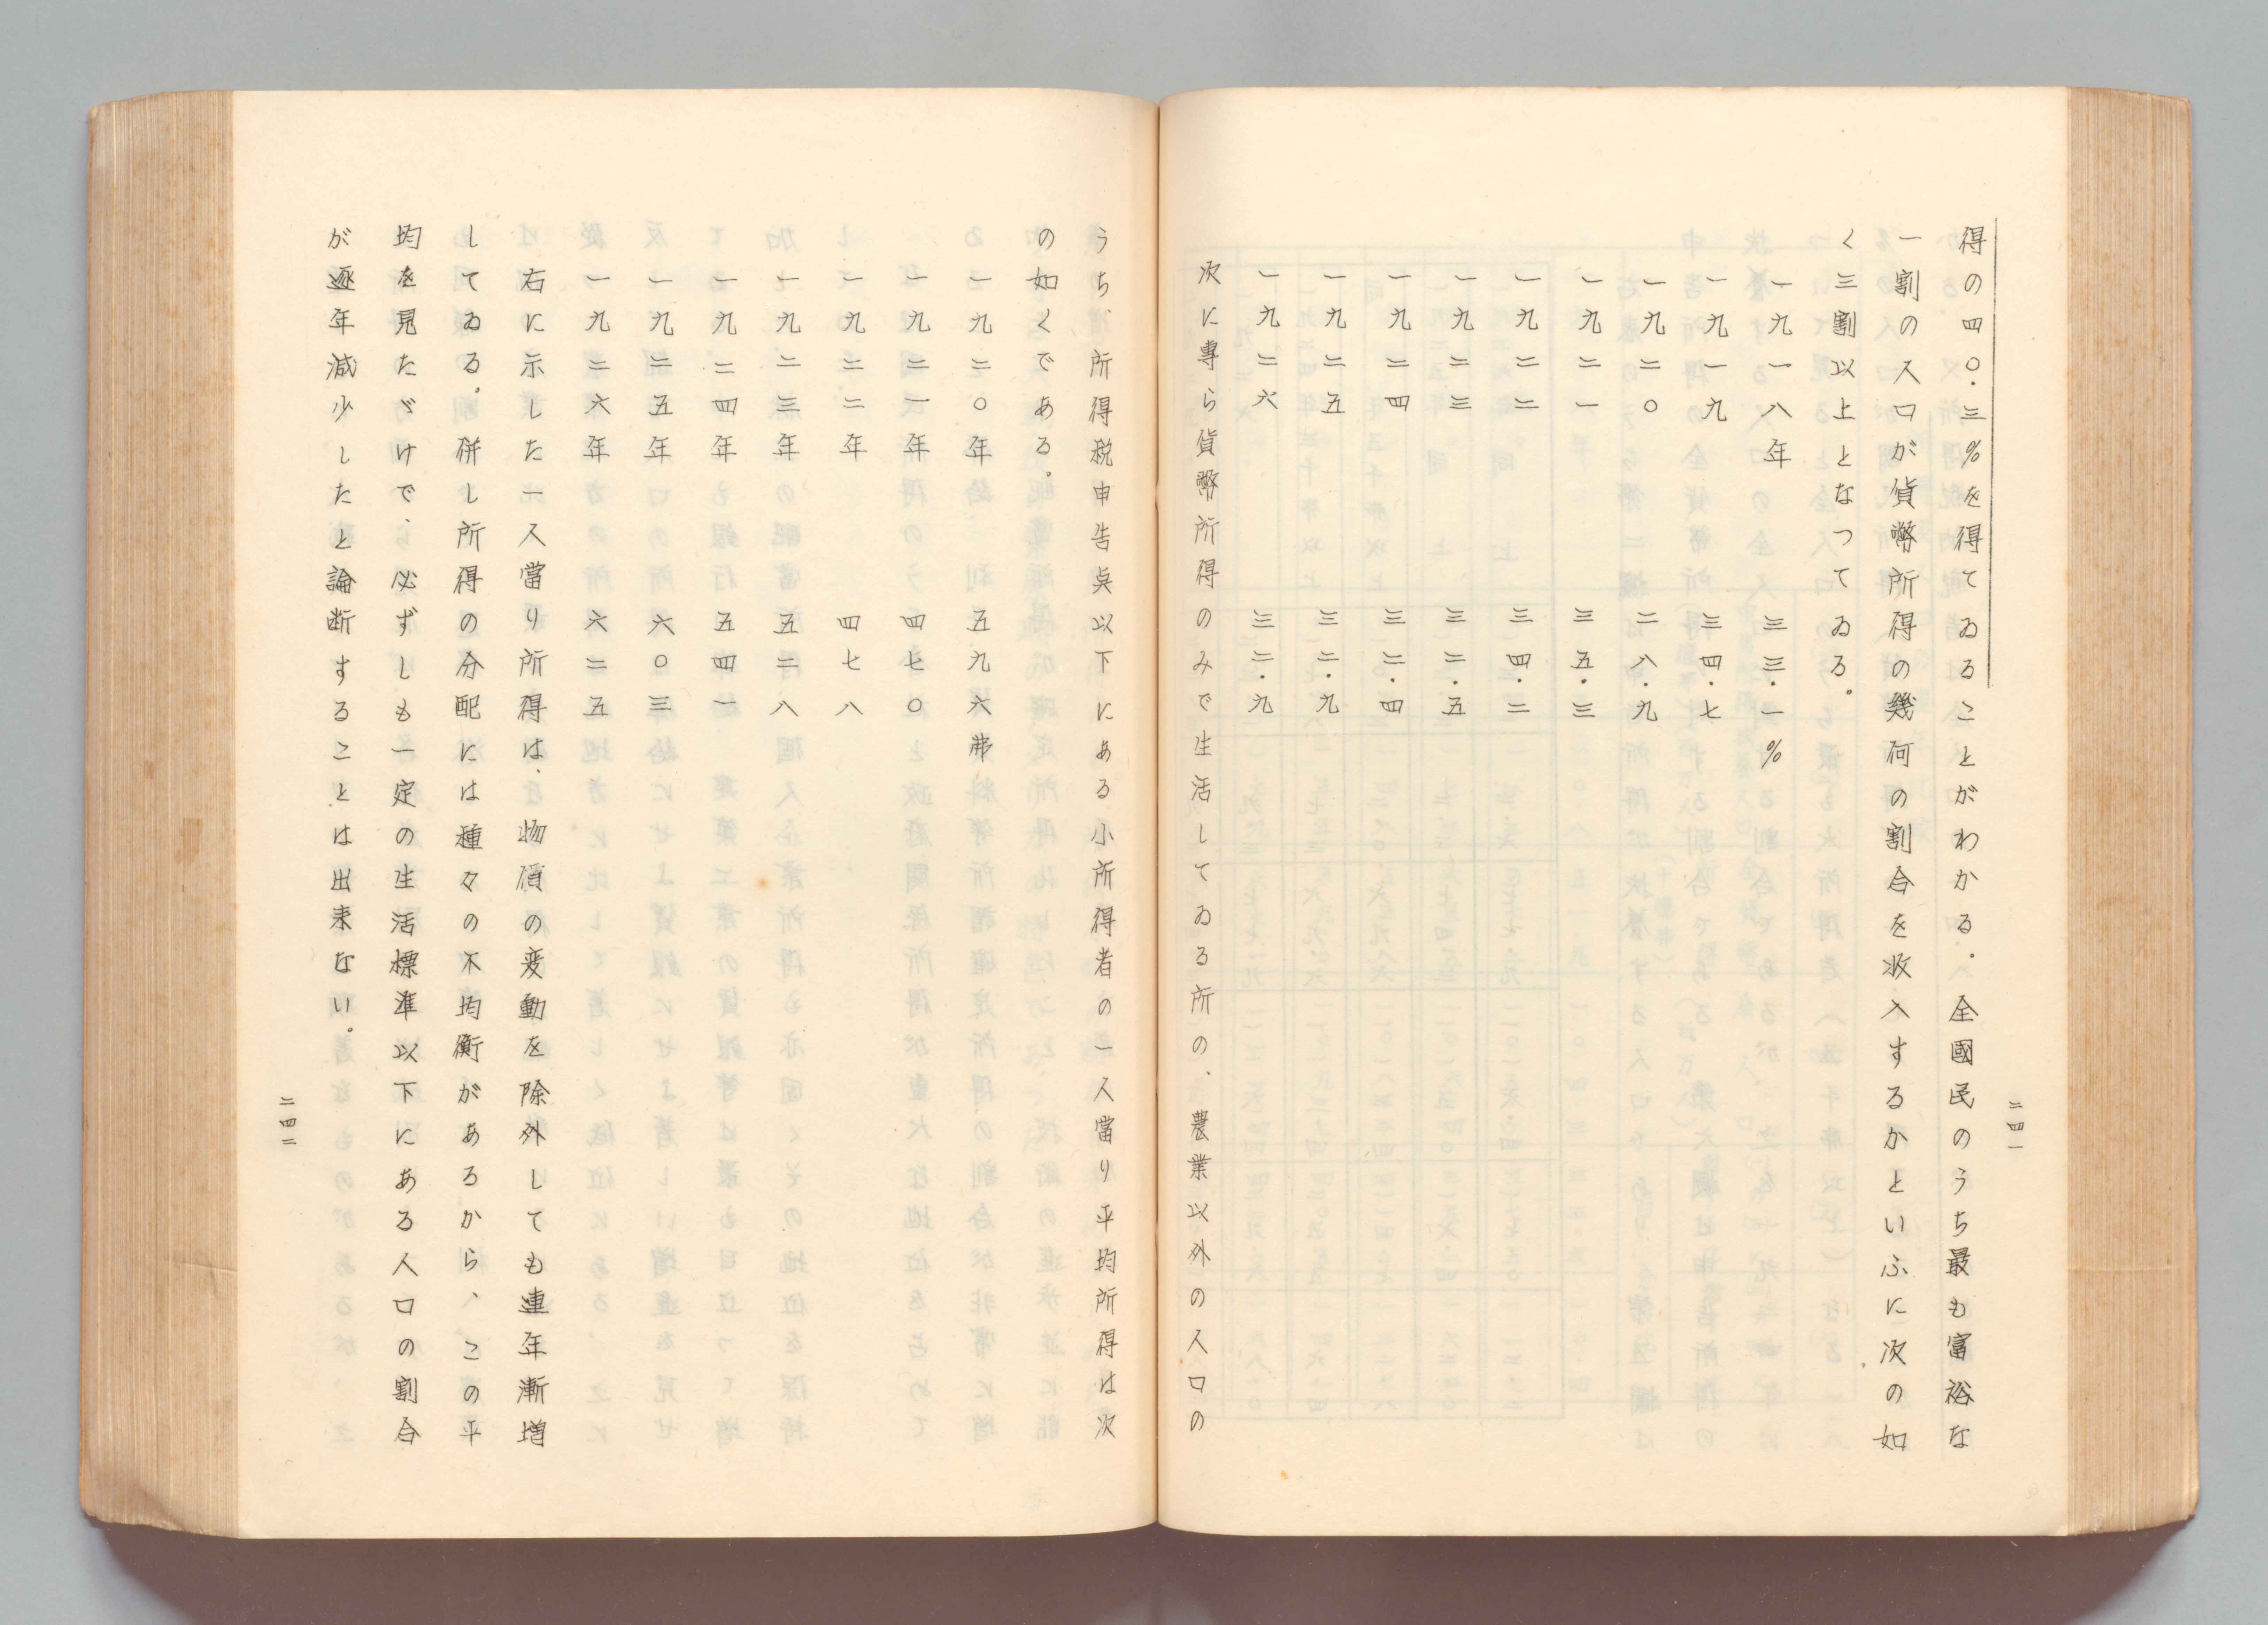 得の四〇・三%を得てゐることがわかる。全國民のうち最も富裕な
一割の人口が貨幣所得の幾何の割合を收入するかといふに次の如
く三割以上となつてゐる。
一九一八年 三三・一%
一九一九 三四・七
一九二〇 二八・九
一九二一 三五・三
一九二二 三四・二
一九二三 三二・五
一九二四 三二・四
一九二五 三二・九
一九二六 三二・九
次に專ら貨幣所得のみで生活してゐる所の、農業以外の人口の
二四一
うち、所得税申告点以下にある小所得者の一人當り平均所得は次
の如くである。
一九二〇年 五九六弗
一九二一年 四七〇
一九二二年 四七八
一九二三年 五二八
一九二四年 五四一
一九二五年 六〇三
一九二六年 六二五
右に示した一人當り所得は、物價の変動を除外しても連年漸増
してゐる。併し所得の分配には種々の不均衡があるから、この平
均を見たゞけで、必ずしも一定の生活標準以下にある人口の割合
が逐年減少したと論断することは出来ない。
二四二